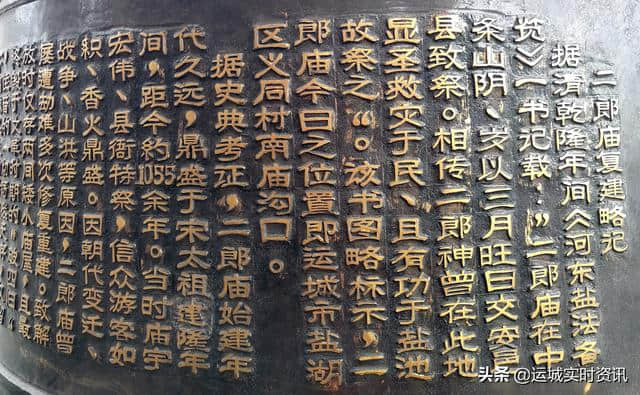 二郎庙复建略记
据清乾隆年间《河东盐法备
览》一书记载："二郎庙在中
条山阴、岁以三月旺日交安邑
县致祭。相传二郎神曾在此地
显圣救灾于民、且有功于盐池
故祭之"。该书图略标示，二
郎庙今日之位置即运城市盐湖
区义同村南庙沟口。
据史典考证，二郎庙始建年
代久远，鼎盛于宋太祖建隆年
间，距今约1055余年。当时庙宇
宏伟、县衙特祭，信众游客如
织、香火鼎盛。因朝代变迁、
战争、山洪等原因，二郎庙曾
屡遭劫难多次修复重建。致解
放时仅存两间矮小庙屋，且毁
头条 @运城实时资讯